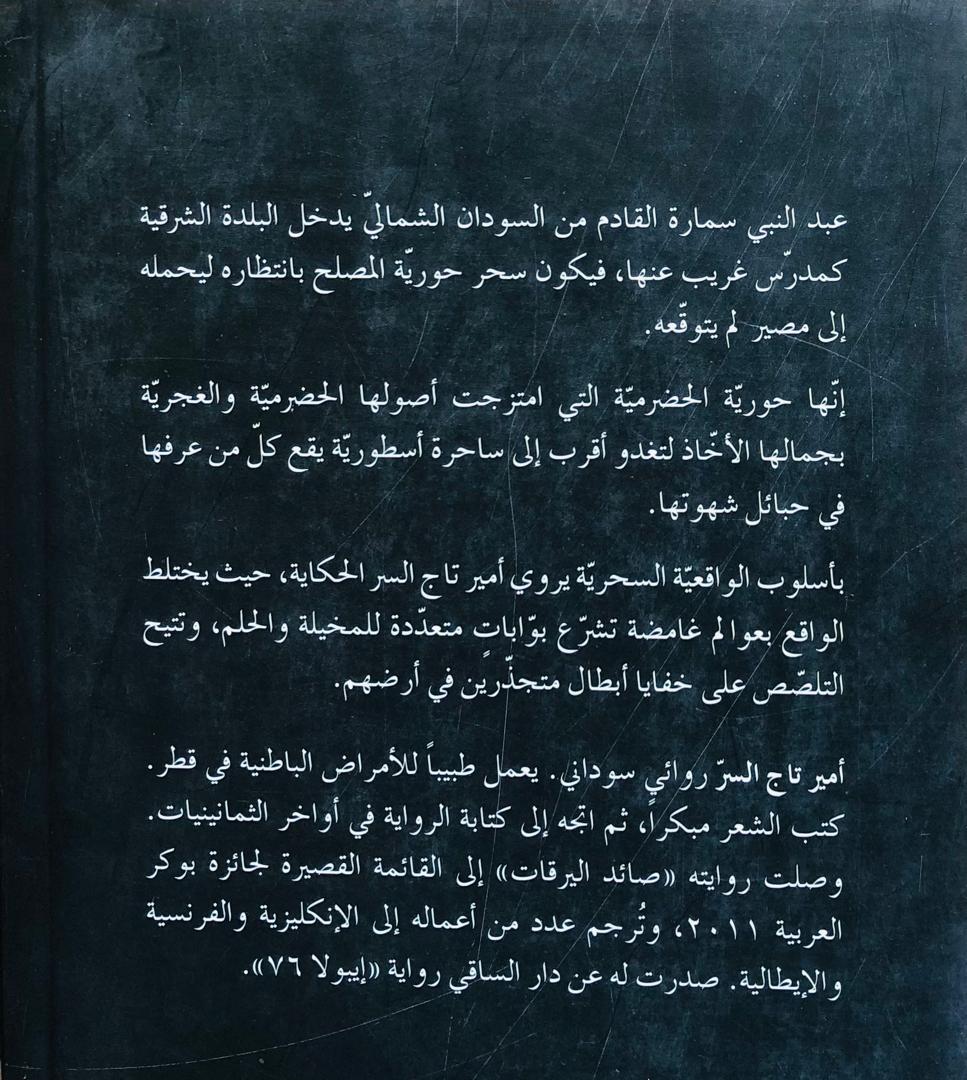 عبد النبي سمارة القادم من السودان الشماليّ يدخل البلدة الشرقية
كمدرّس غريب عنها، فيكون سحر حوريّة المصلح بانتظاره ليحمله
إلى مصير لم يتوقّعه.
إنّها حوريّة الحضرميّة التي امتزجت أصولها الحضرميّة والغجريّة
بجمالها الأخّاذ لتغدو أقرب إلى ساحرة أسطوريّة يقع كلّ من عرفها
في حبائل شهوتها.
بأسلوب الواقعيّة السحريّة يروي أمير تاج السر الحكاية، حيث يختلط
الواقع بعوالم غامضة تشرّع بوّاباتٍ متعدّدة للمخيلة والحلم، وتتيح
التلصّص على خفايا أبطال متجذّرين في أرضهم.
أمير تاج السرّ روائي سوداني. يعمل طبيباً للأمراض الباطنية في قطر.
كتب الشعر مبكراً، ثم اتجه إلى كتابة الرواية في أواخر الثمانينيات.
وصلت روايته «صائد اليرقات» إلى القائمة القصيرة لجائزة بوكر
العربية ٢٠١١، وتُرجم عدد من أعماله إلى الإنكليزية والفرنسية
والإيطالية. صدرت له عن دار الساقي رواية «إيبولا ٧٦».